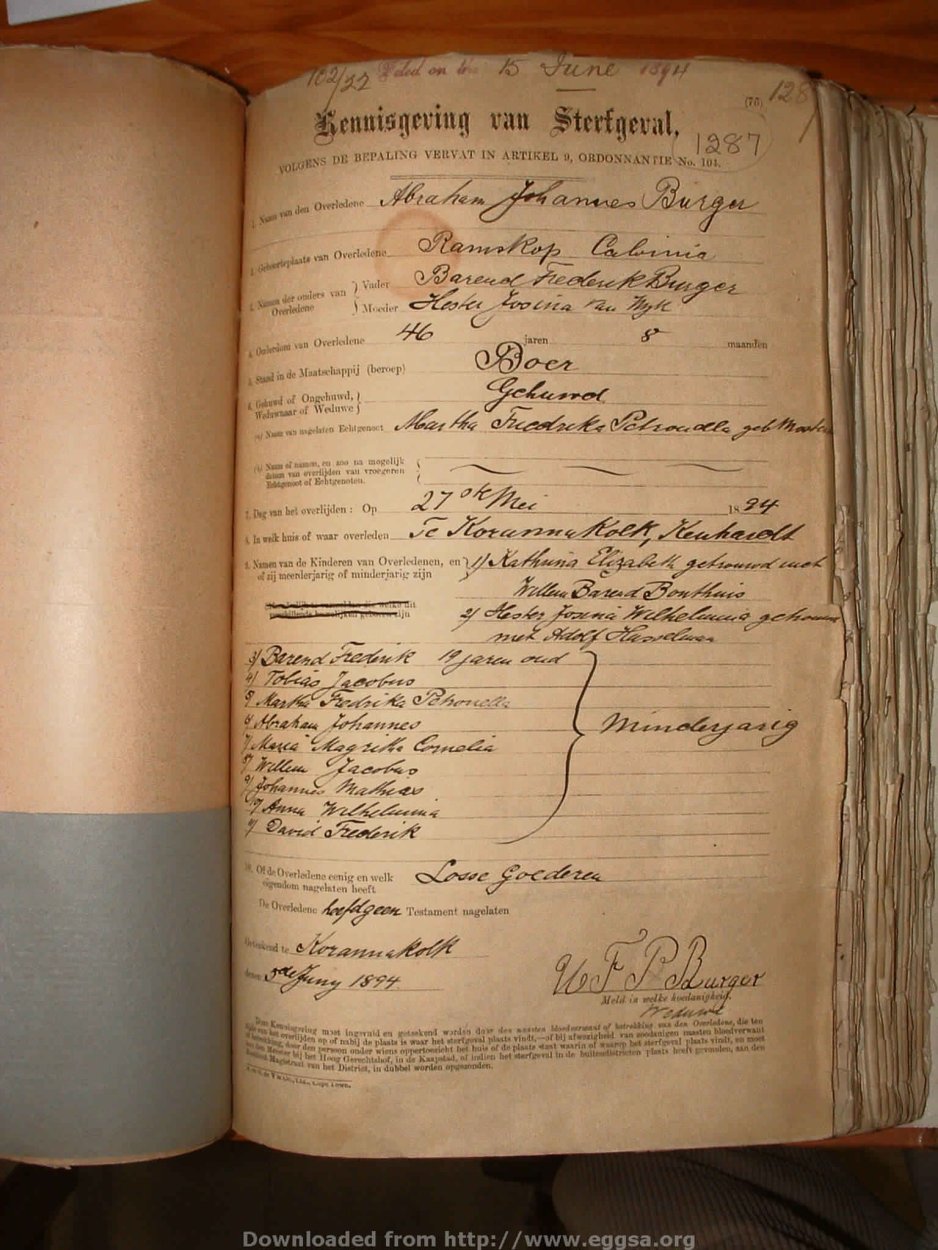 102/22 Filed on the 15 June 1894
(76) 128
Kennisgeving van Sterfgeval,
1287
VOLGENS DE BEPALING VERVAT IN ARTIKEL 9, ORDONNANTIE No. 104.
1. Naam van den Overledene Abraham Johannes Burger
2. Geboorteplaats van Overledene Ramskop Calvinia
3. Namen der ouders van Overledene } Vader Barend Frederik Burger
Moeder Hester Josina van Wyk
4. Ouderdom van Overledene 46 jaren 8 maanden
5. Stand in de Maatschappij (beroep) Boer
6. Gehuwd of Ongehuwd, Weduwnaar of Weduwe } Gehuwd
(a) Naam van nagelaten Echtgenoot Martha Fredrika Petronella geb
(b) Naam of namen, en zoo na mogelijk
datum van overlijden van vroegeren
Echtgenoot of Echtgenoten.
7. Dag van het overlijden: Op 27ste Mei 1894
8. In welk huis of waar overleden Te Korannakolk, Kenhardt
9. Namen van de Kinderen van Overledenen, en 1/ Kathrina Elizabeth getrouwd met
of zij meerderjarig of minderjarig zijn
Willem Barend Bonthuis
2/ Hester Josina Wilhelmina getrouwd
met Adolf Hasselman
3/ Barend Frederik 19 jaren oud
4/ Tobias Jacobus
5/ Martha Fredrika Petronella
6/ Abraham Johannes Minderjarig
7/ Maria Magritha Cornelia
8/ Willem Jacobus
9/ Johannes Mathias
10/ Anna Wilhelmina
11/ David Frederik
10. Of de Overledene eenig en welk Losse Goederen
eigendom nagelaten heeft
De Overledene heefd geen Testament nagelaten
Geteekend te Korannakolk
denen 5de Juny 1894
M F P Burger
Meld in welke hoedanigheid.
Weduwe
Deze Kennisgeving moet ingevuld en geteekend worden door den naasten bloedverwant of betrekking van den Overledene, die ten
tijde van het overlijden op of nabij de plaats is waar het sterfgeval plaats vindt,—of bij afwezigheid van zoodanigen naasten bloedverwant
of betrekking, door den persoon onder wiens oppertoezicht het huis of de plaats staat waarin of waarop het sterfgeval plaats vindt, en moet
aan den Meester bij het Hoog Gerechtshof, in de Kaapstad, of indien het sterfgeval in de buitendistricten plaats heeft gevonden, aan den
Resident Magistraat van het District, in dubbel worden opgezonden.
Cape Town.
Downloaded from http://www.eggsa.org